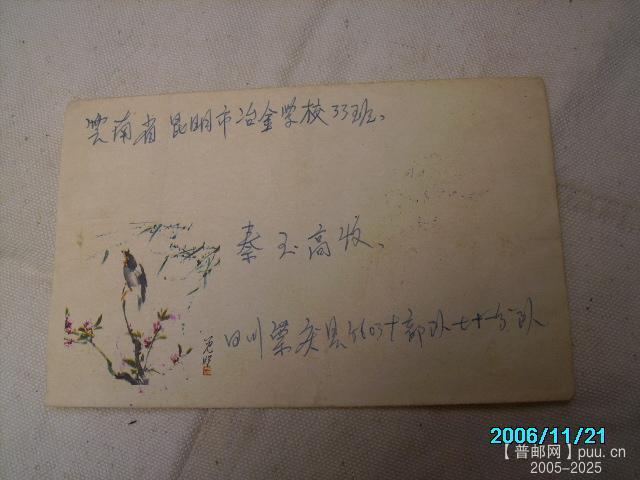 雲南省昆明市冶金学校33班。
秦玉高收、
四川荣
县
部队七十分队
2006/11/21
【普邮网】puu.cn
2005-2025